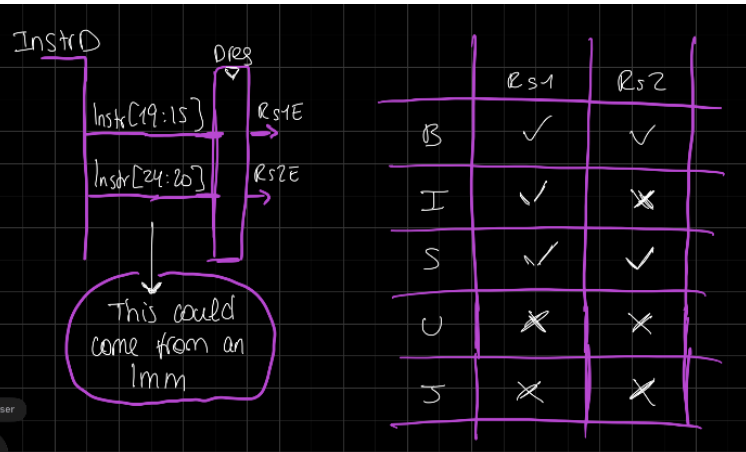 InstrD
Dreg
Instr[19:15]
Rs1E
Instr[24:20]
Rs2E
This could
come from an
Imm
Rs1 Rs2
B ✓ ✓
I ✓ ×
S ✓ ✓
U × ×
J × ×
ser